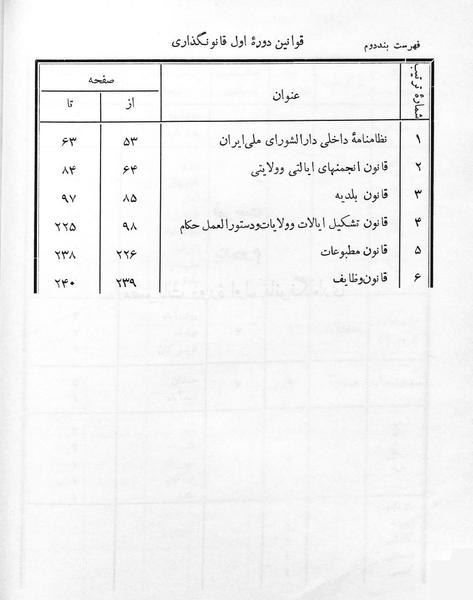 فهرست بنددوم
قوانین دورهٔ اول قانونگذاری
شمارهٔ ترتیب عنوان صفحه
از تا
۱ نظامنامهٔ داخلی دارالشورای ملی‌ایران ۵۳ ۶۳
۲ قانون انجمنهای ایالتی وولایتی ۶۴ ۸۴
۳ قانون بلدیه ۸۵ ۹۷
۴ قانون تشکیل ایالات وولایات‌ودستورالعمل حکام ۹۸ ۲۲۵
۵ قانون مطبوعات ۲۲۶ ۲۳۸
۶ قانون‌وظایف ۲۳۹ ۲۴۰